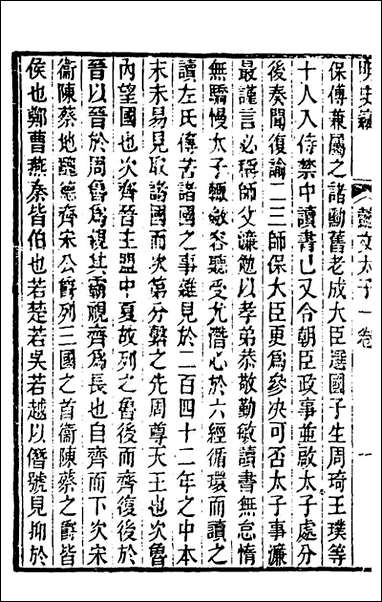 保傅兼屬之諸勳舊老成大臣選國子生周琦王璞等
十人入侍禁中讀書已又令朝臣政事並啟太子處分
後奏聞復諭二三師保大臣更爲參決可否太子事濂
最謹言必稱師父濂勉以孝弟恭敬勤敏讀書無怠惰
無驕慢太子輒斂容聽受尤潛心於六經循環而讀之
讀左氏傳苦諸國之事雜見於二百四十二年之中本
末未易見取諸國以次第分繫之先周尊天王也次魯
內望國也次齊晉主盟中夏故列之魯後而齊實後於
晉以晉於周魯爲親其霸視齊爲長也自齊而下次宋
衞陳蔡地醜德齊宋公爵列三國之首衞陳蔡之爵皆
侯也鄭曹燕秦皆伯也若楚若吳若越以僭號見抑於
懿文太子 一卷 一